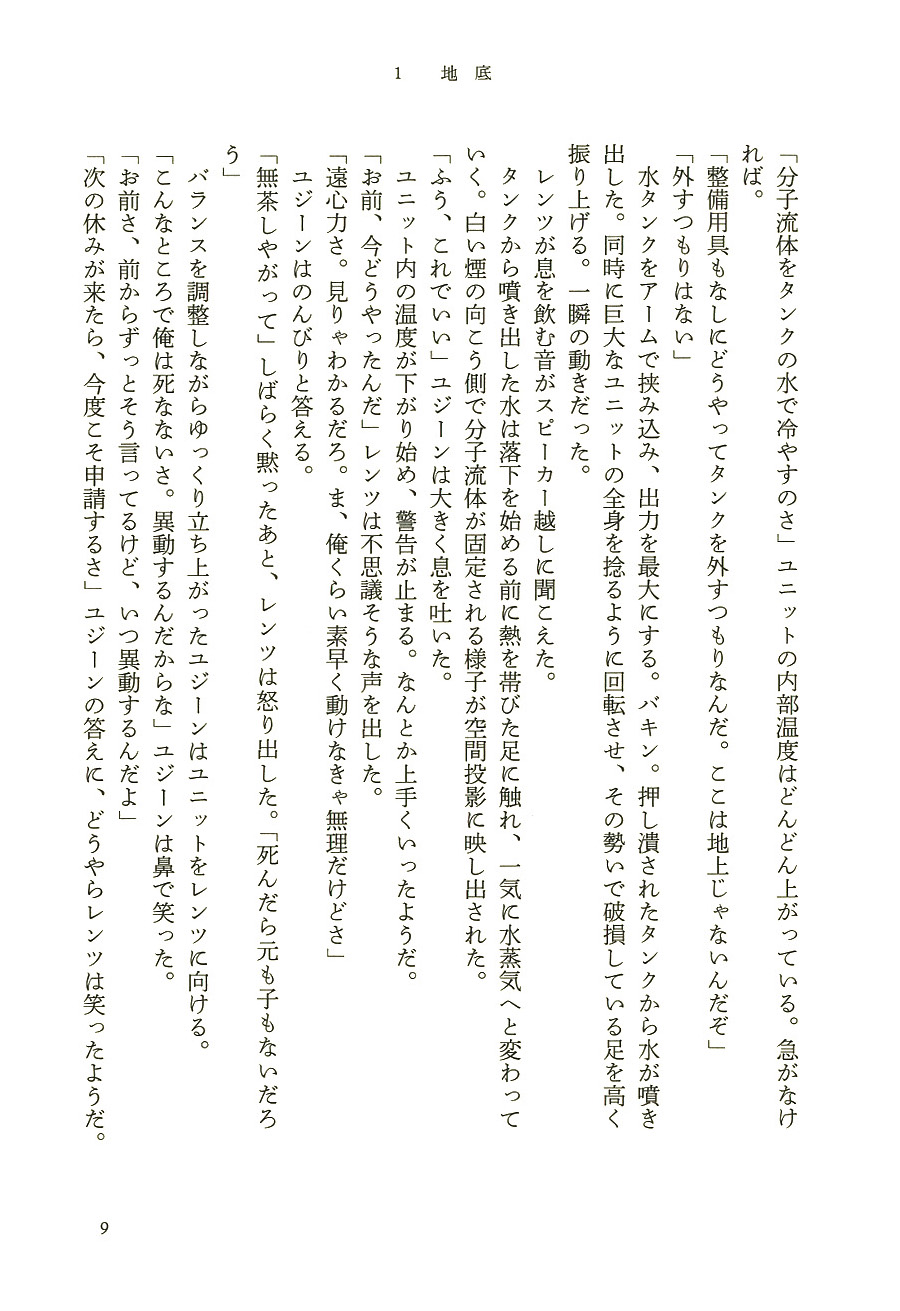 1　地　底
「分子流体をタンクの水で冷やすのさ」ユニットの内部温度はどんどん上がっている。急がなけ
れば。
「整備用具もなしにどうやってタンクを外すつもりなんだ。ここは地上じゃないんだぞ」
「外すつもりはない」
　水タンクをアームで挟み込み、出力を最大にする。バキン。押し潰されたタンクから水が噴き
出した。同時に巨大なユニットの全身を捻るように回転させ、その勢いで破損している足を高く
振り上げる。一瞬の動きだった。
　レンツが息を飲む音がスピーカー越しに聞こえた。
　タンクから噴き出した水は落下を始める前に熱を帯びた足に触れ、一気に水蒸気へと変わって
いく。白い煙の向こう側で分子流体が固定される様子が空間投影に映し出された。
「ふう、これでいい」ユジーンは大きく息を吐いた。
　ユニット内の温度が下がり始め、警告が止まる。なんとか上手くいったようだ。
「お前、今どうやったんだ」レンツは不思議そうな声を出した。
「遠心力さ。見りゃわかるだろ。ま、俺くらい素早く動けなきゃ無理だけどさ」
　ユジーンはのんびりと答える。
「無茶しやがって」しばらく黙ったあと、レンツは怒り出した。「死んだら元も子もないだろ
う」
　バランスを調整しながらゆっくり立ち上がったユジーンはユニットをレンツに向ける。
「こんなところで俺は死なないさ。異動するんだからな」ユジーンは鼻で笑った。
「お前さ、前からずっとそう言ってるけど、いつ異動するんだよ」
「次の休みが来たら、今度こそ申請するさ」ユジーンの答えに、どうやらレンツは笑ったようだ。
9